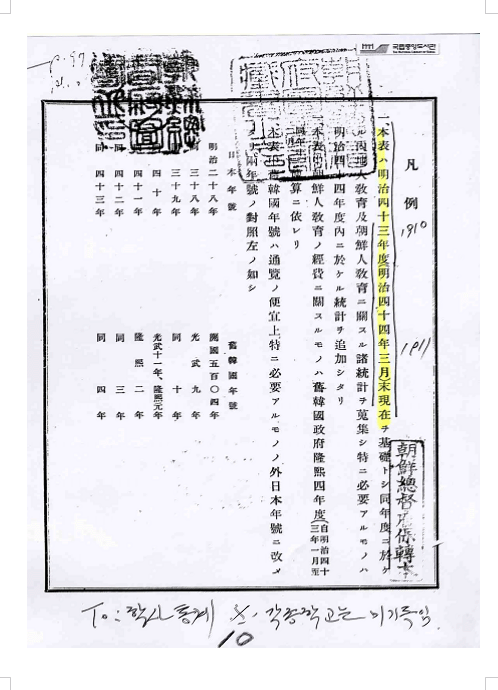 국립중앙도서관
p.97
凡例
1910
1911
一、本表ハ明治四十三年度(明治四十四年三月)末現在ヲ基礎トシ同年度ニ於ケ
ル内地人教育及朝鮮人教育ニ關スル諸統計ヲ蒐集シ特ニ必要アルモノハ
明治四十四年度內ニ於ケル統計ヲ追加シタリ
本表中朝鮮人教育ノ經費ニ關スルモノハ舊韓國政府隆熙四年度(自明治四十三年一月至
算ニ依レリ
本表中舊韓國年號ハ通覽ノ便宜上特ニ必要アルモノノ外日本年號ニ改メ
兩年號ノ對照左ノ如シ
日本年號 舊韓國年號
明治二十八年 開國五百〇四年
三十八年 光武九年
三十九年 同十年
四十年 光武十一年、隆熙元年
四十一年 隆熙二年
同四十二年 同三年
同四十三年 同四年
朝鮮總督府保轉本
10